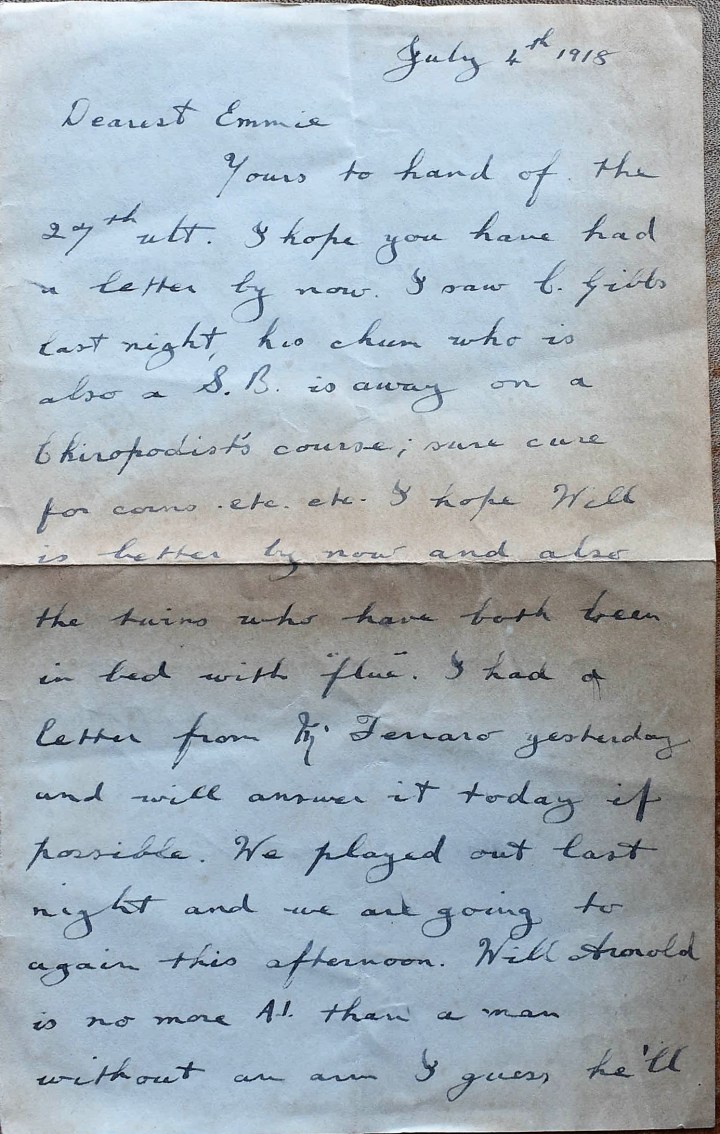 July 4th 1918
Dearest Emmie
Yours to hand of the
27th ult. I hope you have had
a letter by now. I saw C. Gibbs
last night, his chum who is
also a S.B. is away on a
Chiropodist's course; sure cure
for corns. etc. etc. I hope Will
is better by now and also
the twins who have both been
in bed with "flue". I had a
letter from Mr Ferraro yesterday
and will answer it today if
possible. We played out last
night and we are going to
again this afternoon. Will Arnold
is no more A1. than a man
without an arm I guess he'll